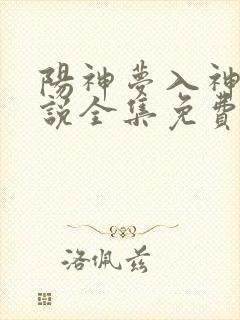 陽神夢入神
說全集免費
洛佩兹